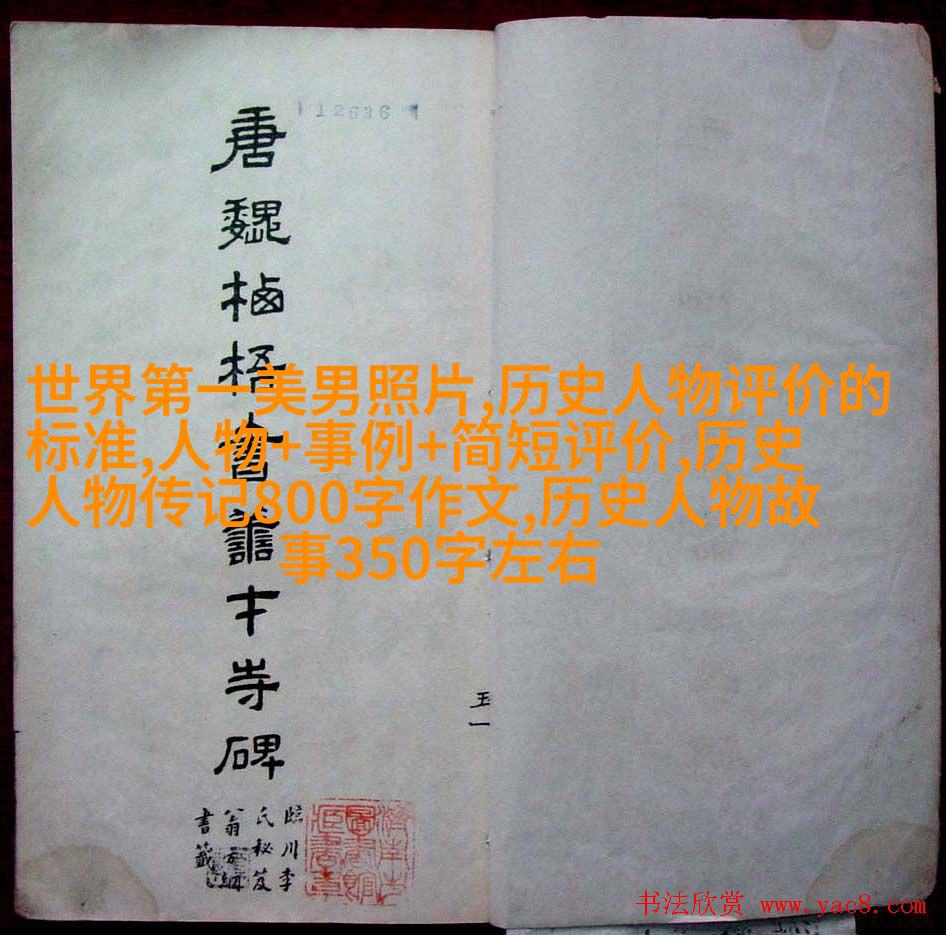 12636
唐魏栖梧書善才寺碑
世界第一美男照片,历史人物评价的
标准,人物+事例+简短评价,历史
人物传记800字作文,历史人物故
事350字左右
臨川李
氏秘笈
翁方綱
書籤
濟南市
圖書館
藏書章
书法欣赏 www.yac8.com